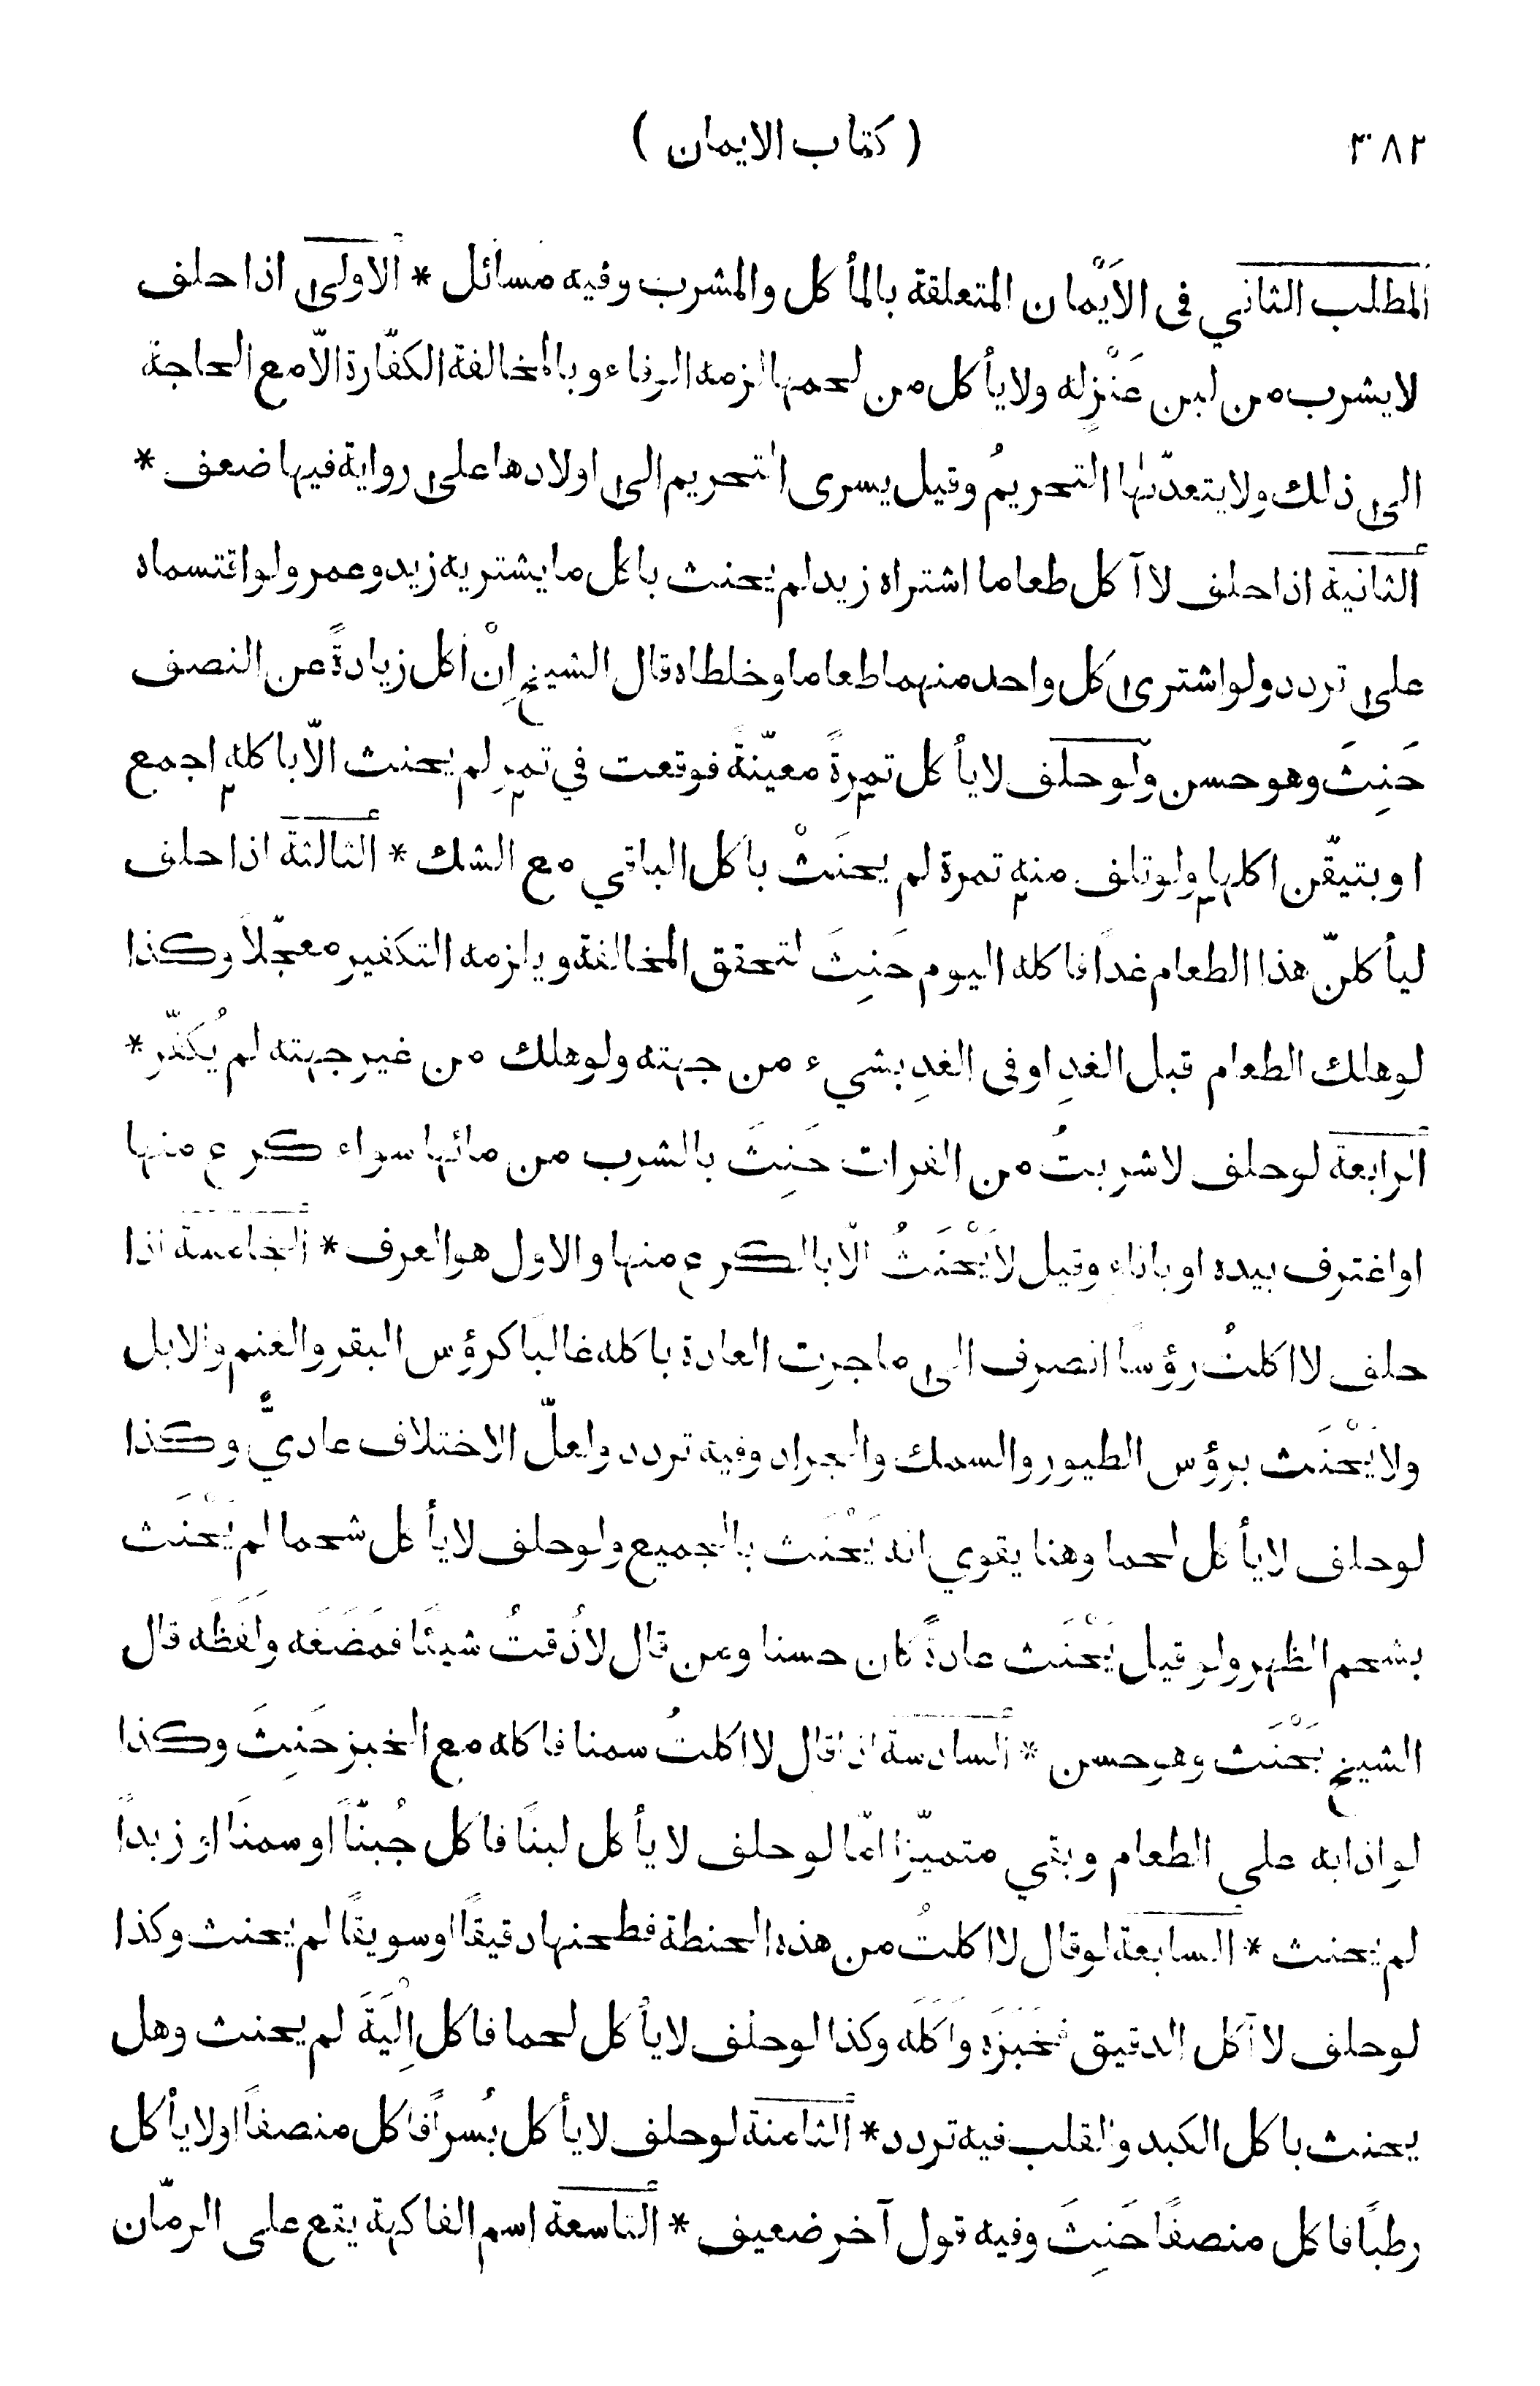 ٣٨٢ ( كتاب الايمان )
المطلب الثاني فى الاَيْمان المتعلقة بالمأكل والمشرب وفيه مسائل * الاولى اذا حلف
لا يشرب من لبن عَنْزٍله ولا يأكل من لحمها لزمه الوفاء وبالمخالفة الكفّارة الاّ مع الحاجة
الى ذلك ولا يتعدّىٰها التحريمُ وقيل يسرى التحريم الى اولادها على رواية فيها ضعف *
الثانية اذا حلف لا آكل طعاما اشتراه زيد لم يحنث باكل ما يشتريه زيد وعمر ولو اقتسماه
على تردد ولو اشترى كل واحد منهما طعاما وخلطاه قال الشيخ اِنْ اَكل زيادةً عن النصف
حَنِثَ وهو حسن ولو حلف لا يأكل تمرةً معيّنةً فوقعت في تمرٍ لم يحنث الاّ باكله اجمع
او بتيقّن اكلها ولو تلف منه تمرة لم يحنَثْ باَكل الباقي مع الشك * الثالثة اذا حلف
ليأكلنّ هذا الطعام غداً فاكله اليوم حَنِثَ لتحقق المخالفة ويلزمه التكفير معجّلاً وكذا
لو هلك الطعام قبل الغدِ او فى الغدِ بشيء من جهته ولو هلك من غير جهته لم يُكَفّر *
الرابعة لو حلف لا شرِبتُ من الفرات حَنِثَ بالشرب من مائها سواء كرع منها
او اغترف بيده او باناء وقيل لا يَحْنَثُ الاّ بالكرع منها والاول هو العرف * الخامسة اذا
حلف لا اكلتُ رؤساً انصرف الى ما جرت العادة باكله غالباً كرؤس البقر والغنم والابل
ولا يَحْنَث برؤس الطيور والسمك والجراد وفيه تردد ولعلّ الاختلاف عاديٌّ وكذا
لو حلف لا يأكل لحما وهنا يقوي انه يَحْنَث بالجميع ولو حلف لا يأكل شحما لم يَحْنَث
بشحم الظهر ولو قيل يَحْنَث عادةً كان حسنا ومن قال لا ذُقتُ شيئًا فمَضَغَه ولَفَظَه قال
الشيخ يَحْنَث وهو حسن * السادسة اذا قال لا اكلتُ سمنا فاكله مع الخبز حَنِثَ وكذا
لو اذابه على الطعام وبقي متميّزا امّا لو حلف لا يأكل لبنًا فاَكل جُبنّاً او سمنًا او زبداً
لم يَحنث * السابعة لو قال لا اكلتُ من هذه الحنطة فطحنها دقيقًا او سويقًا لم يَحنث وكذا
لو حلف لا آكل الدقيق فخَبَزَه واَكَلَه وكذا لو حلف لا يأكل لحما فاكل اِلْيَةَ لم يحنث وهل
يحنث باكل الكبد والقلب فيه تردد * الثامنة لو حلف لا يأكل بُسراً فاكل منصفاً او لا يأكل
رطبًا فاكل منصفًا حَنِثَ وفيه قول آخر ضعيف * التاسعة اسم الفاكهة يقع على الرمّان